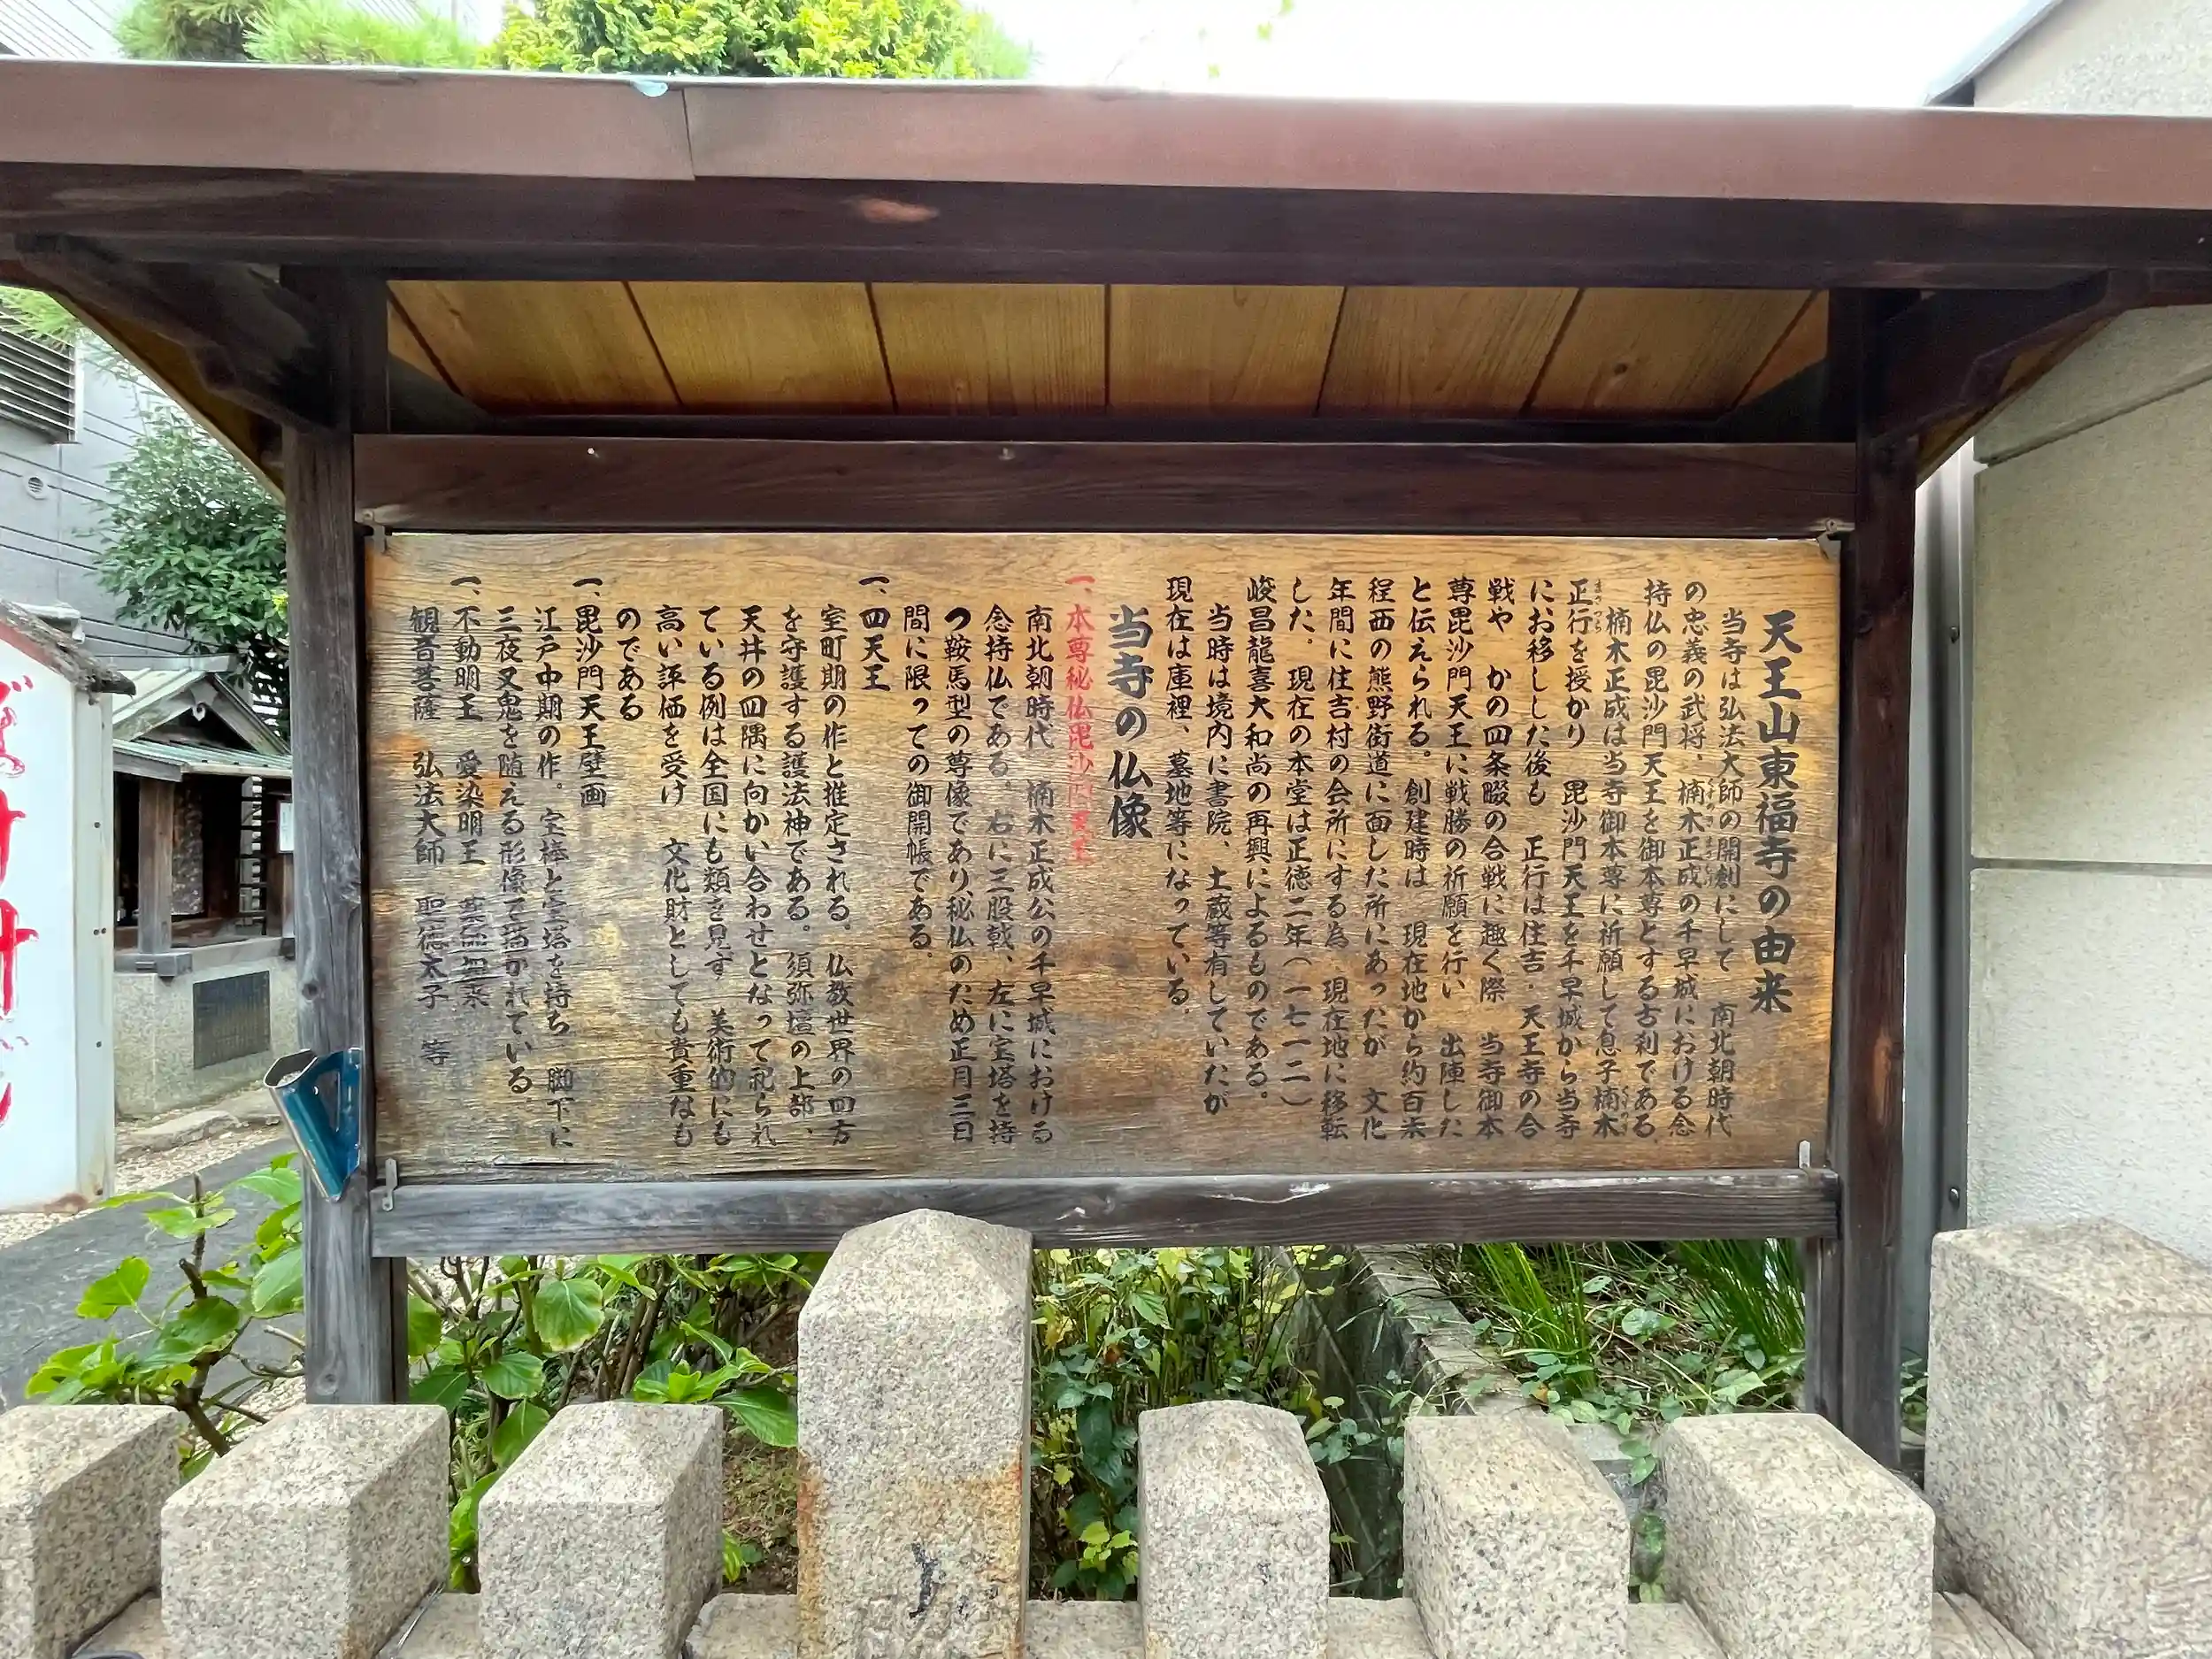 天王山東福寺の由来
当寺は弘法大師の開創にして 南北朝時代
の忠義の武将、楠木正成の千早城における念
持仏の毘沙門天王を御本尊とする古刹である。
楠木正成は当寺御本尊に祈願して息子楠木
正行を授かり 毘沙門天王を千早城から当寺
にお移しした後も 正行は住吉・天王寺の合
戦や かの四条畷の合戦に趣く際 当寺御本
尊毘沙門天王に戦勝の祈願を行い 出陣した
と伝えられる。創建時は 現在地から約百米
程西の熊野街道に面した所にあったが 文化
年間に住吉村の会所にする為 現在地に移転
した。現在の本堂は正徳二年(一七一二)
峻昌龍喜大和尚の再興によるものである。
当時は境内に書院、土蔵等有していたが
現在は庫裡、墓地等になっている。
当寺の仏像
一、本尊秘仏毘沙門天王
南北朝時代 楠木正成公の千早城における
念持仏である。右に三股戟、左に宝塔を持
つ鞍馬型の尊像であり、秘仏のため正月三日
間に限っての御開帳である。
一、四天王
室町期の作と推定される。仏教世界の四方
を守護する護法神である。須弥壇の上部、
天井の四隅に向かい合わせとなって祀られ
ている例は全国にも類を見ず 美術的にも
高い評価を受け 文化財としても貴重なも
のである
一、毘沙門天王壁画
江戸中期の作。宝棒と宝塔を持ち 脚下に
三夜叉鬼を随える形像で描かれている
一、不動明王 愛染明王 薬師如来
観音菩薩 弘法大師 聖徳太子 等